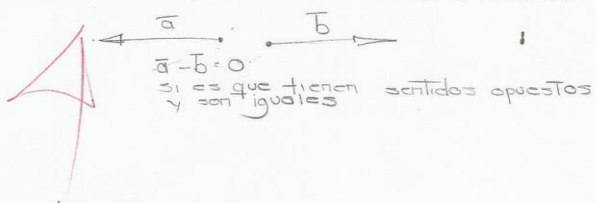 a̅ b̅
a̅ - b̅ = 0
si es que tienen sentidos opuestos
y son iguales